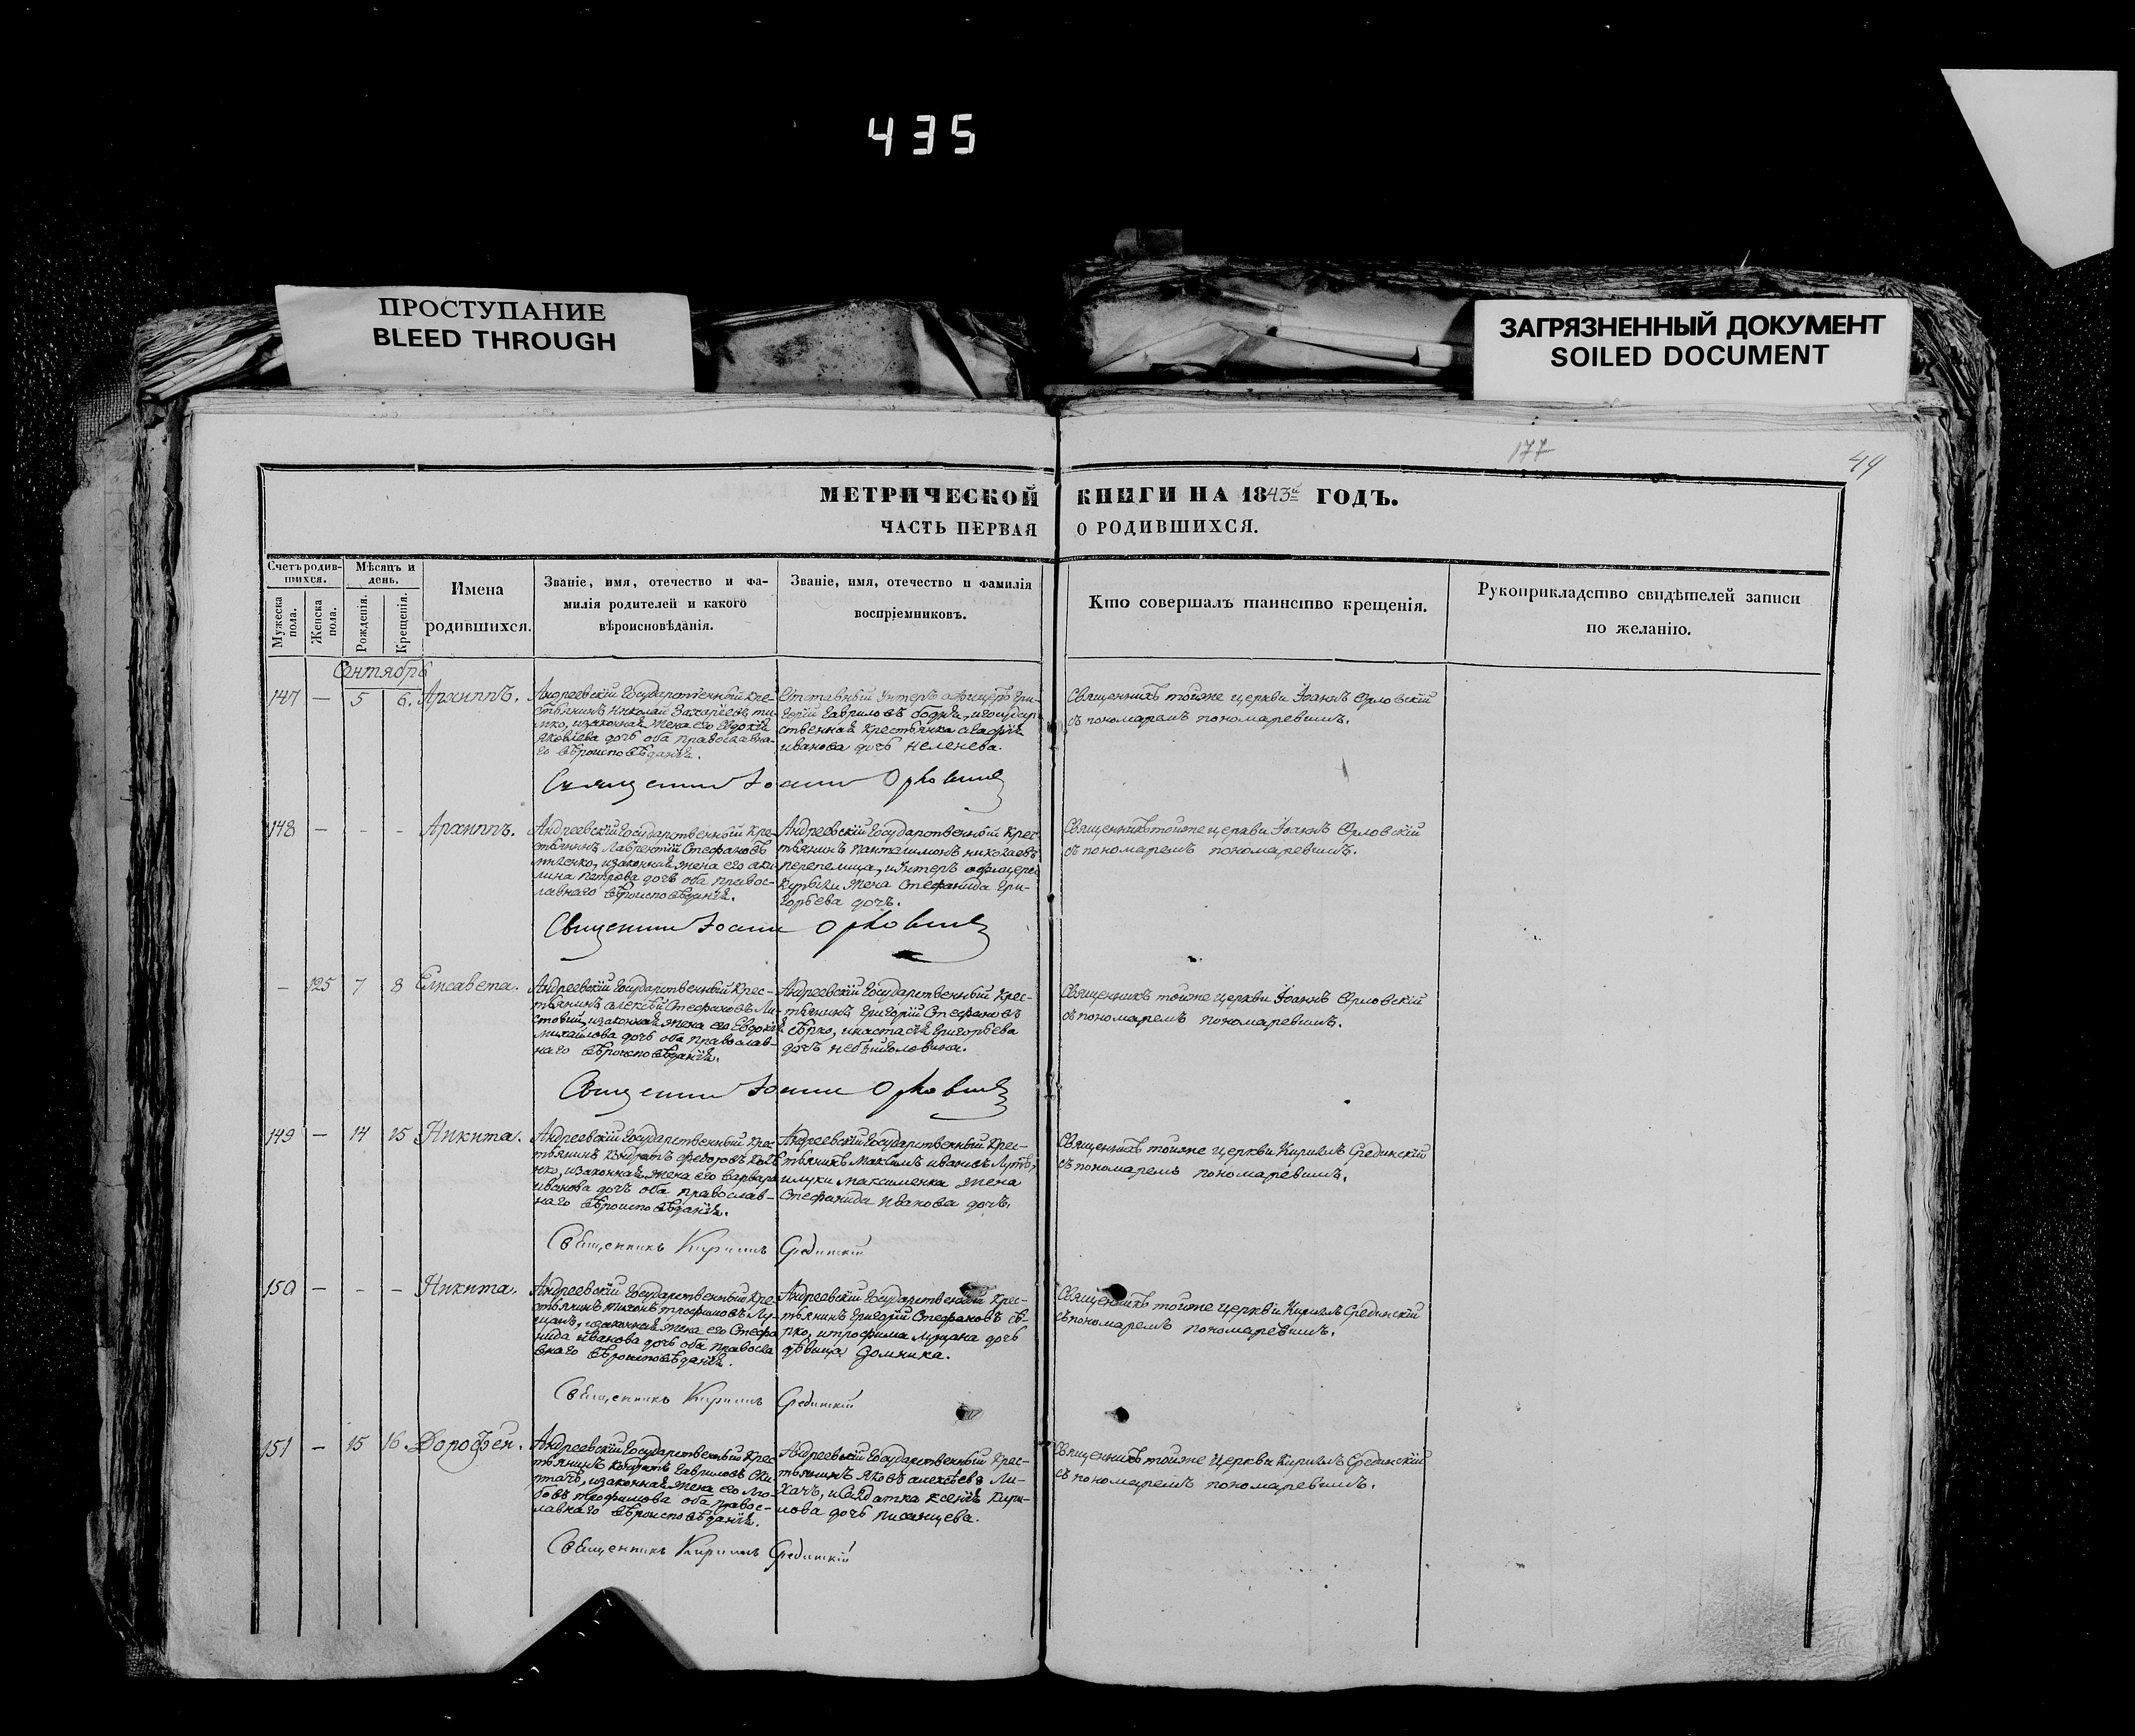 435
ПРОСТУПАНИЕ
BLEED THROUGH
ЗАГРЯЗНЕННЫЙ ДОКУМЕНТ
SOILED DOCUMENT
177
44
МЕТРИЧЕСКОЙ КНИГИ НА 1843й ГОДЪ.
ЧАСТЬ ПЕРВАЯ О РОДИВШИХСЯ.
Счетъ родив-
шихся.
Мужеска
пола.
Женска
пола.
Мѣсяцъ и
день.
Рожденія.
Крещенія.
Имена
родившихся.
Званіе, имя, отечество и фа-
милія родителей и какого
вѣроисповѣданія.
Званіе, имя, отечество и фамилія
воспріемниковъ.
Кто совершалъ таинство крещенія.
Рукоприкладство свидѣтелей записи
по желанію.
Сентябрь
147 — 5 6. Архиппъ.
Андреевскій Государственный кре-
стьянинъ Николай Захаріевъ
законная жена его Евдокія
Яковлева дочь оба православна-
го вѣроисповѣданія.
Отставный Унтеръ офицеръ Гри-
горій Гавриловъ и государ-
ственная крестьянка Агафія
Иванова дочь
Священникъ тойже церкви Іоаннъ Орловскій
съ пономаремъ Пономаревимъ.
Священникъ Іоаннъ Орловскій
148 — - - Архиппъ.
Андреевскій Государственный кре-
стьянинъ Лаврентій Стефановъ
изаконная жена его Аки-
лина Петрова дочь оба правос-
лавнаго вѣроисповѣданія.
Андреевскій Государственный крес-
тьянинъ Пантелимонъ Николаевъ
Перепелица, и Унтеръ офицера
жена Стефанида Гри-
горьева дочь.
Священникъ тойже церкви Іоаннъ Орловскій
съ пономаремъ Пономаревимъ.
Священникъ Іоаннъ Орловскій
— 125 7 8 Елисавета.
Андреевскій Государственный крес-
тьянинъ Алексѣй Стефановъ Ли-
стовий, изаконная жена его Евдокія
Михайлова дочь оба православ-
наго вѣроисповѣданія.
Андреевскій Государственный крес-
тьянинъ Григорій Стефановъ
и Настасія Григорьева
дочь
Священникъ тойже церкви Іоаннъ Орловскій
съ пономаремъ Пономаревимъ.
Священникъ Іоаннъ Орловскій
149 — 14 15 Никита.
Андреевскій Государственный крес-
тьянинъ Кондратъ Федоровъ
изаконная жена его Варвара
Иванова дочь оба православ-
наго вѣроисповѣданія.
Андреевскій Государственный крес-
тьянинъ Максимъ Ивановъ
илуки Максименка жена
Стефанида Иванова дочь.
Священникъ тойже церкви Кириллъ Срединскій
съ пономаремъ Пономаревимъ.
Священникъ Кириллъ Срединскій
150 — - — Никита.
Андреевскій Государственный кре-
стьянинъ Тихонъ Трофимовъ Лу-
цанъ, изаконная жена его Стефа
нида Иванова дочь оба правосла
внаго вѣроисповѣданія.
Андреевскій Государственный крес-
тьянинъ Григорій Стефановъ
и Трофима Луцана дочь
дѣвица Домника.
Священникъ тойже церкви Кириллъ Срединскій
съ пономаремъ Пономаревимъ.
Священникъ Кириллъ Срединскій
151 — 15 16. Дорофей.
Андреевскій Государственный крес
тьянинъ Кондратъ Гавриловъ
изаконная жена его Лю-
бовь Трофимова оба правос-
лавнаго вѣроисповѣданія.
Андреевскій Государственный крес-
тьянинъ Яковъ Алексѣевъ Ли-
хачъ, и Солдатка Ксенія Кири-
лова дочь
Священникъ тойже церкви Кириллъ Срединскій
съ пономаремъ Пономаревимъ.
Священникъ Кириллъ Срединскій